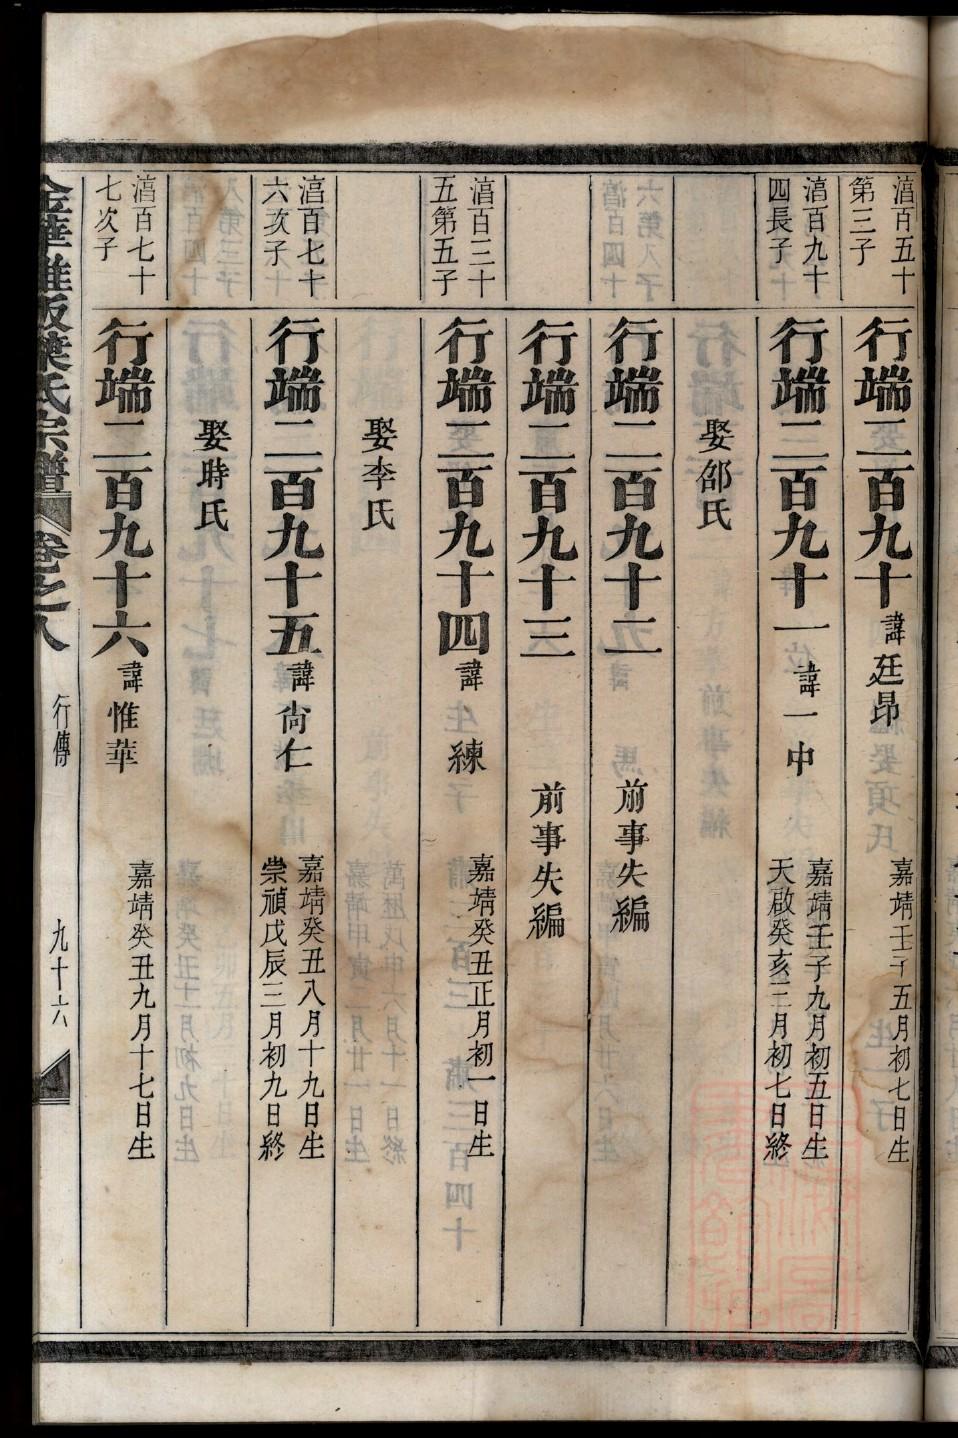 湻百五十
第三子
行端二百九十
諱廷昂
嘉靖壬子五月初七日生
湻百九十
四長子
行端二百九十一
諱一中
嘉靖壬子九月初五日生
天啟癸亥二月初七日終
娶邵氏
行端二百九十二
前事失編
行端二百九十三
前事失編
湻百三十
五第五子
行端二百九十四
諱練
嘉靖癸丑正月初一日生
娶李氏
湻百七十
六次子
行端二百九十五
諱尚仁
嘉靖癸丑八月十九日生
崇禎戊辰三月初九日終
娶時氏
湻百七十
七次子
行端二百九十六
諱惟華
嘉靖癸丑九月十七日生
金華 氏宗譜
卷之八
行傳
九十六